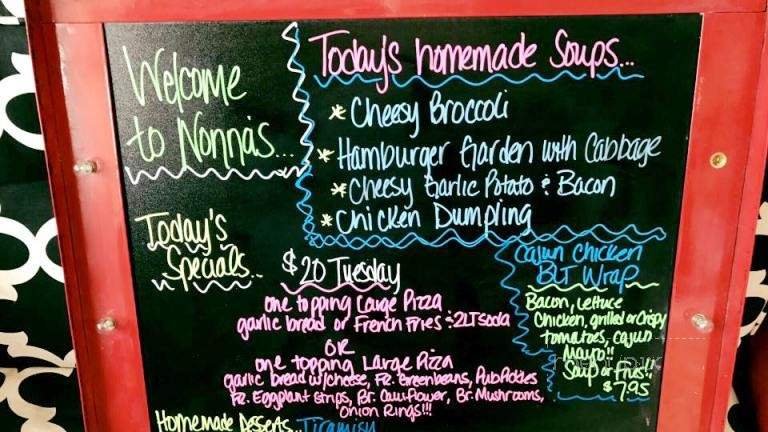 Welcome
to Nonna's...
Today's homemade Soups...
* Cheesy Broccoli
* Hamburger Garden with Cabbage
* Cheesy Garlic Potato & Bacon
* Chicken Dumpling
Today's
Specials..
$20 Tuesday
one topping Large Pizza
garlic bread or French Fries - 2LT soda
OR
one topping Large Pizza
garlic bread w/cheese, Fr. Greenbeans, Pub Pickles
Fr. Eggplant Strips, Br. Cauliflower, Br. Mushrooms,
Onion Rings!!!
Cajun Chicken
BLT Wrap
Bacon, lettuce
Chicken, grilled or Crispy
tomatoes, cajun
Mayo!!
Soup or Fries!!
$7.95
Homemade Desserts... Tiramisu